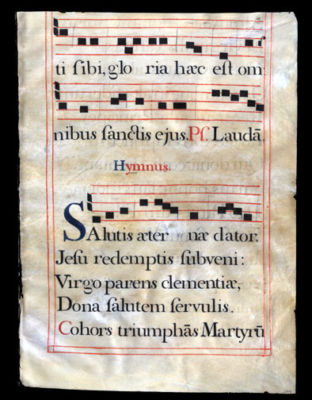 ti ſibi, glo ria hæc eſt om
nibus ſanctis ejus. Pſ. Laudā.
Hymnus.
SAlutis æter næ dator:
Jeſu redemptis ſubveni:
Virgo parens clementiæ,
Dona ſalutem ſervulis.
Cohors triumphās Martyrū